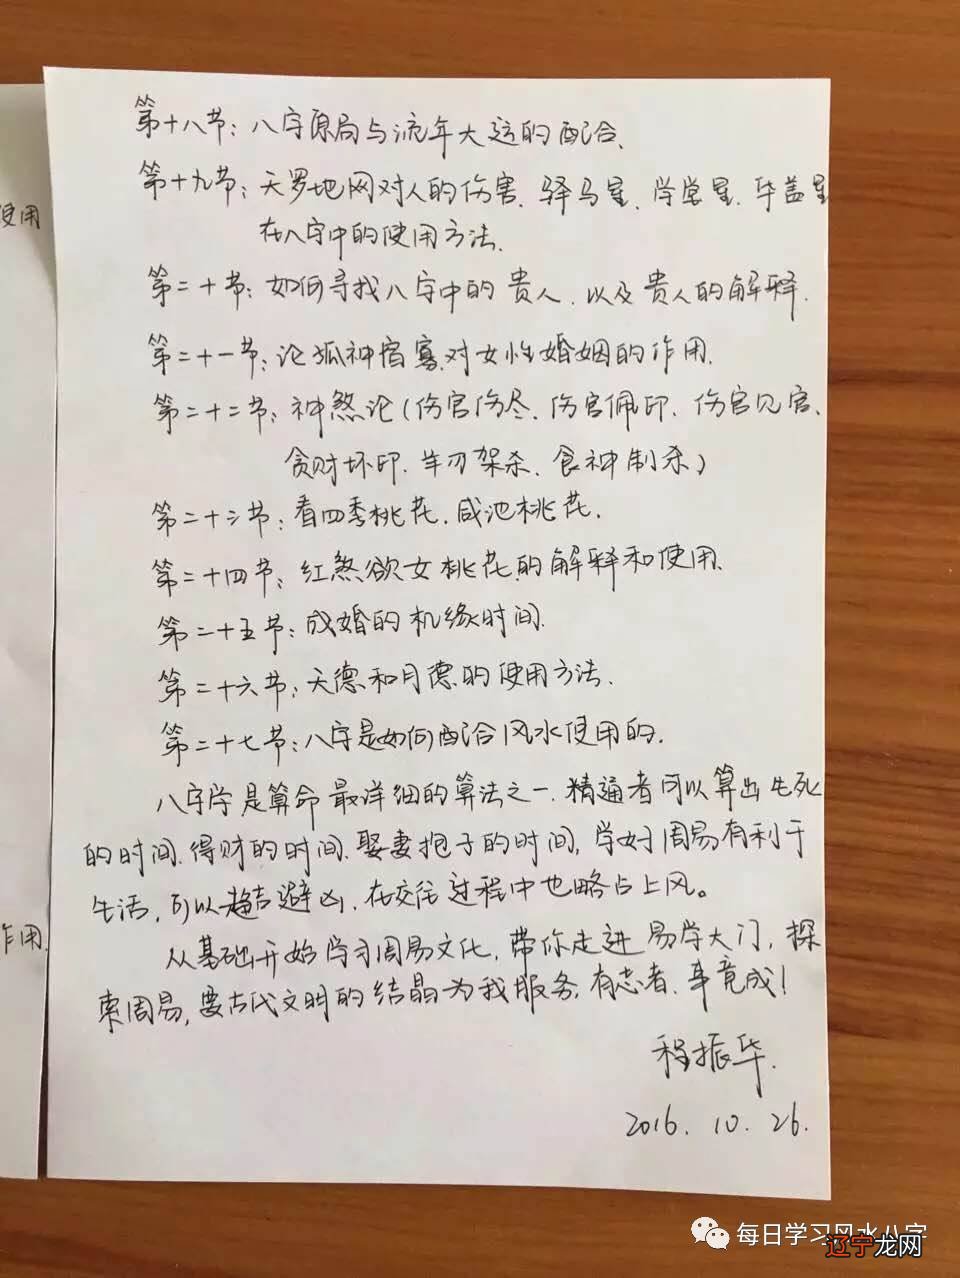 第十八节：八字原局与流年大运的配合.
第十九节：天罗地网对人的伤害. 驿马星. 学堂星. 华盖星
在八字中的使用方法.
第二十节：如何寻找八字中的贵人. 以及贵人的解释.
第二十一节：论狐神宿寡.对女性婚姻的作用.
第二十二节：神煞论(伤官伤尽. 伤官佩印. 伤官见官.
贪财坏印. 羊刃架杀. 食神制杀)
第二十三节：看四季桃花. 咸池桃花.
第二十四节：红煞欲女桃花的解释和使用.
第二十五节：成婚的机缘时间.
第二十六节：天德和月德的使用方法.
第二十七节：八字是如何配合风水使用的.
八字学是算命最详细的算法之一. 精通者可以算出生死
的时间. 得财的时间. 娶妻抱子的时间, 学好周易有利于
生活, 可以趋吉避凶. 在交往过程中也略占上风。
从基础开始学习周易文化, 带你走进易学大门, 探
索周易, 要古代文明的结晶为我服务, 有志者. 事竟成!
程振华.
2016. 10. 26.
使用
作用.
每日学习风水八字
辽宁龙网